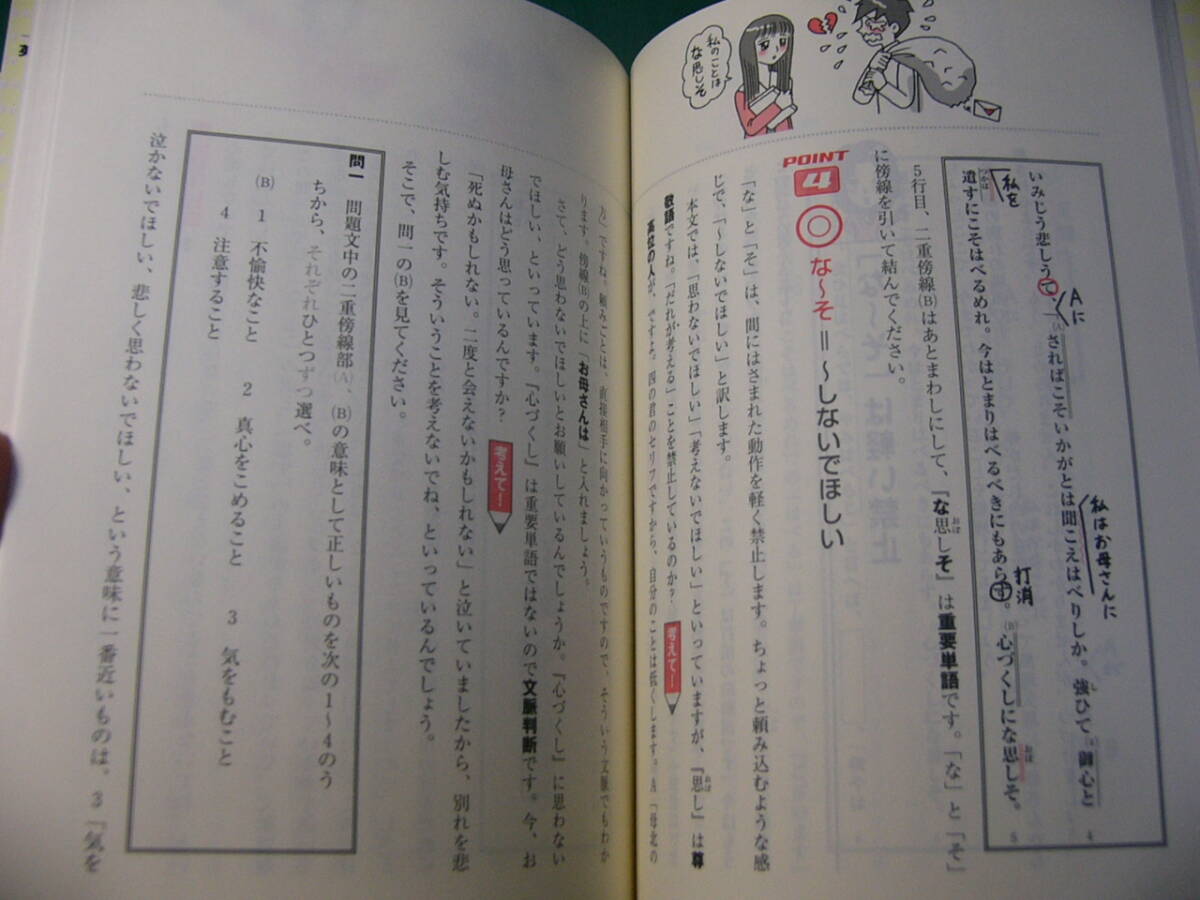 いみじう悲しうて、されればこそいかがとは聞こえはべりしか。強ひて御心と
Aに
(A)
私はお母さんに
し
4
遣すにこそはべるめれ。今はとまりはべるべきにもあらず。心づくしにな思しそ。
つかは
私を
打消
(B)
おぼ
5
5行目、二重傍線(B)はあとまわしにして、『な思しそ』は重要単語です。「な」と「そ」
おぼ
に傍線を引いて結んでください。
POINT
4
◎な〜そ=〜しないでほしい
「な」と「そ」は、間にはさまれた動作を軽く禁止します。ちょっと頼み込むような感
じで、「〜しないでほしい」と訳します。
本文では、「思わないでほしい」「考えないでほしい」といっていますが、『思し』は尊
おぼ
敬語ですね。「だれが考える」ことを禁止しているのか?
考えて!
高位の人が、ですよ。四の君のセリフですから、自分のことは低くします。A「母北の
私のことは
な思しそ
方」ですね。頼みごとは、直接相手に向かっていうものですので、そういう文脈でもわか
ります。傍線(B)の上に「お母さんは」と入れましょう。
さて、どう思わないでほしいとお願いしているんでしょうか。『心づくし』に思わない
でほしい、といっています。『心づくし』は重要単語ではないので文脈判断です。今、お
母さんはどう思っているんですか?
考えて!
「死ぬかもしれない。二度と会えないかもしれない」と泣いていましたから、別れを悲
しむ気持ちです。そういうことを考えないでね、といっているんでしょう。
そこで、問一の(B)を見てください。
問一 問題文中の二重傍線部(A)、(B)の意味として正しいものを次の1〜4のう
ちから、それぞれひとつずつ選べ。
(B) 1 不愉快なこと 2 真心をこめること 3 気をもむこと
4 注意すること
泣かないでほしい、悲しく思わないでほしい、という意味に一番近いものは、3「気を